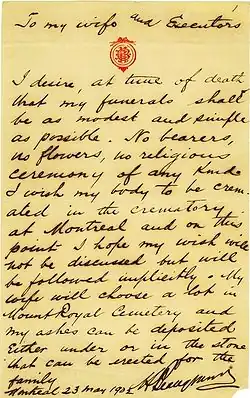 1
To my wife and Executors
I desire, at time of death
that my funerals shall
be as modest and simple
as possible. No bearers,
no flowers, no religious
ceremony of any kind.
I wish my body to be crem
ated in the crematory
at Montreal and on this
point I hope my wish will
not be discussed but will
be followed implicitly. My
wife will choose a lot in
Mount Royal Cemetery and
my ashes can be deposited
Either under or in the stone
that can be erected for the
family
Montreal 23 May 1902